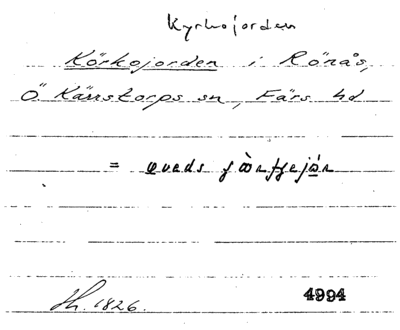 Kyrkojorden
Körkojorden i Rönås,
Ö. Kärrstorps sn, Färs hd
= oveds
Th. 1826.
4994